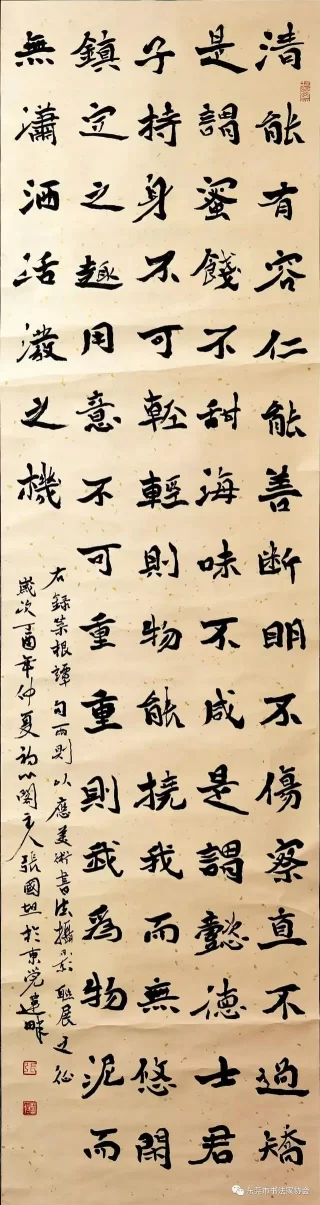 清能有容仁能善断明不傷察直不過矯
是謂蜜餞不甜海味不咸是謂懿德士君
子持身不可輕輕則物能撓我而無悠閑
鎮定之趣用意不可重重則我為物泥而
無瀟洒活潑之機
右録菜根譚句兩則以應美術書法攝影聯展之征
歲次丁酉年仲夏主人張國坦於東莞建畔
东莞市书法家协会